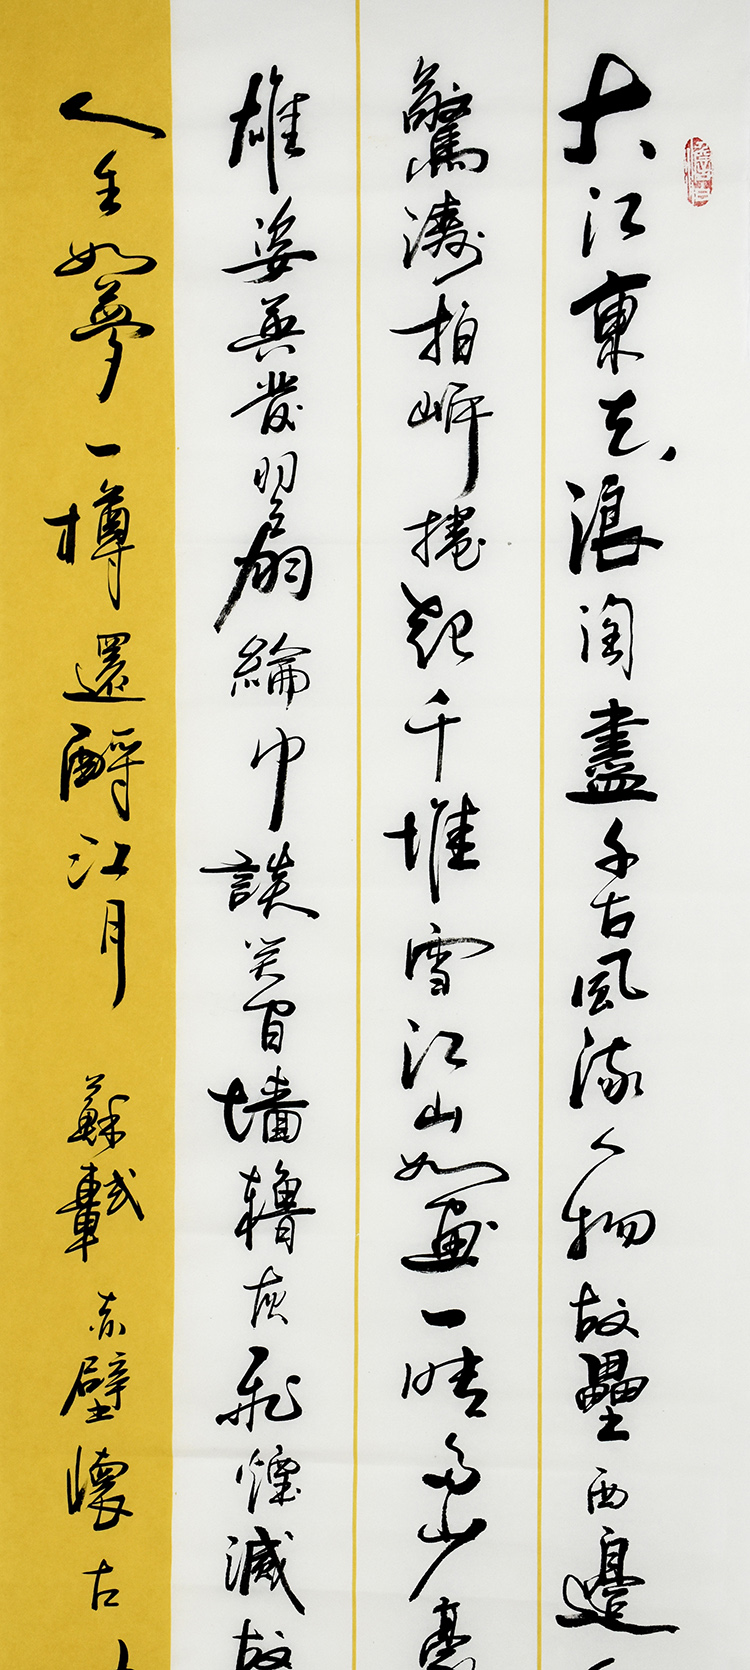 大江東去浪淘盡千古風流人物故壘西邊
驚濤拍岸捲起千堆雪江山如畫一時多少豪
雄姿英發羽扇綸巾談笑間檣櫓灰飛煙滅故
人生如夢一樽還酹江月 蘇軾 赤壁懷古